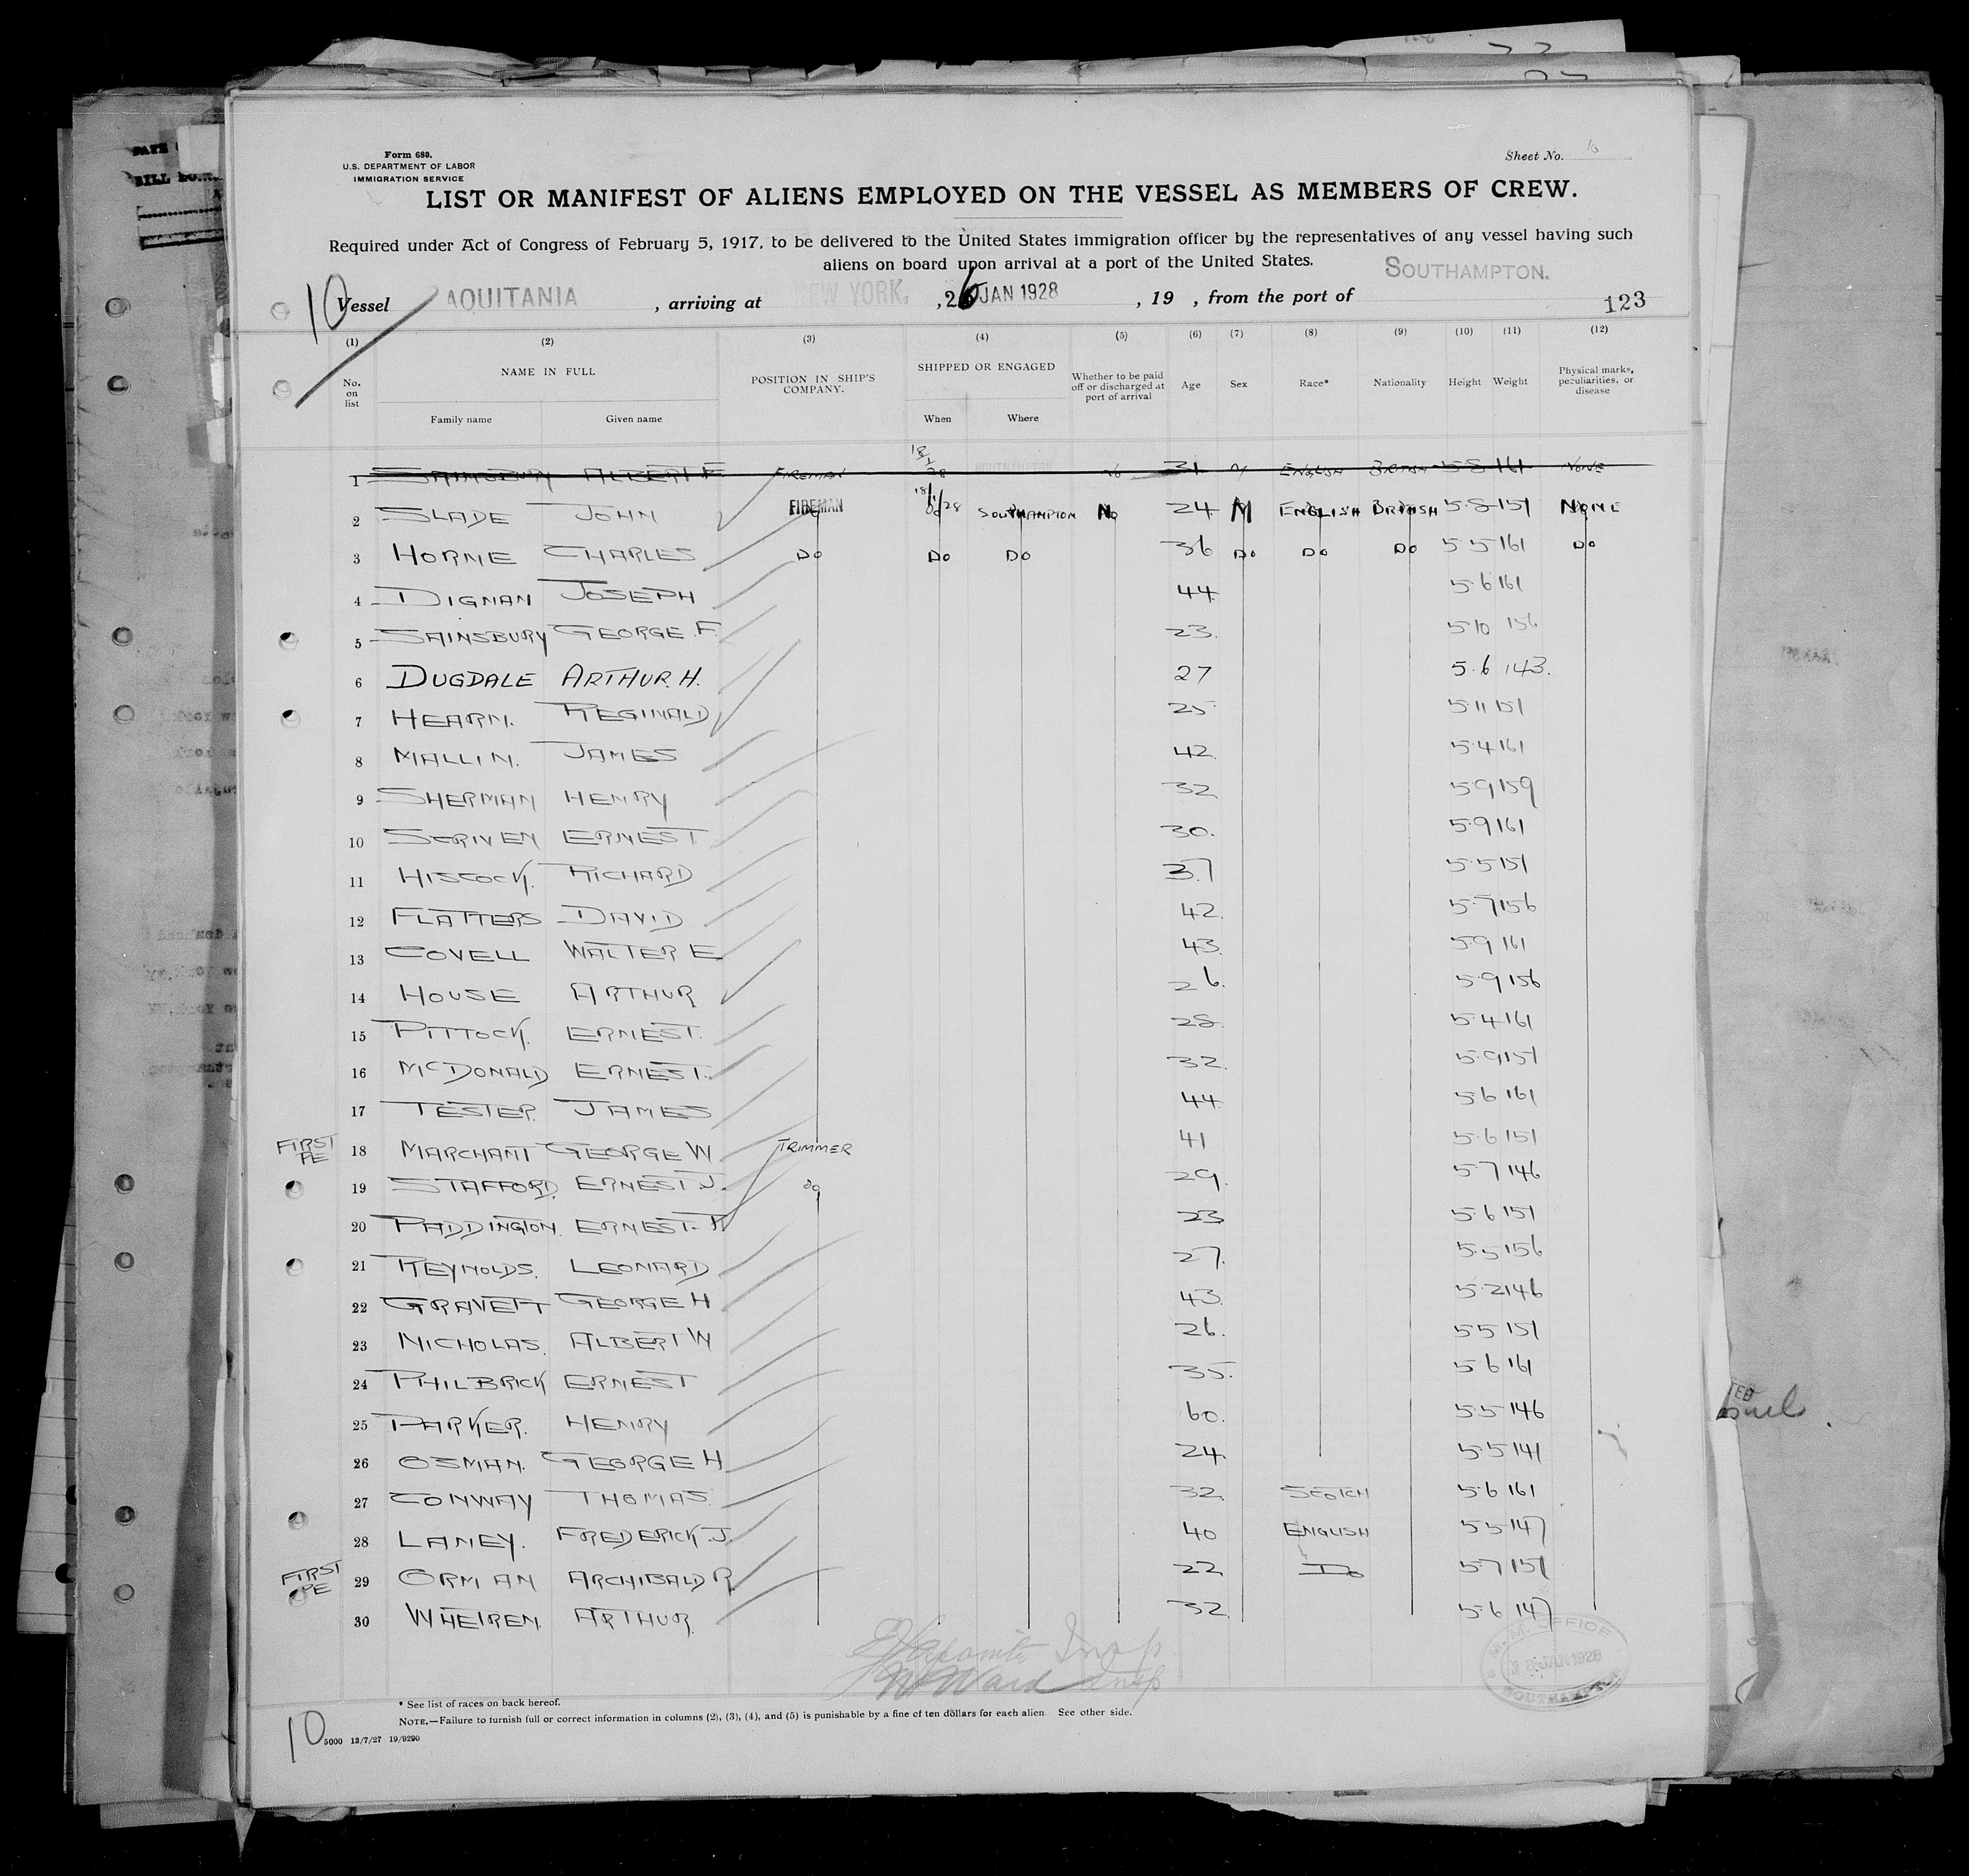 Form 680.
U.S. DEPARTMENT OF LABOR
IMMIGRATION SERVICE
Sheet No. 10
LIST OR MANIFEST OF ALIENS EMPLOYED ON THE VESSEL AS MEMBERS OF CREW.
Required under Act of Congress of February 5, 1917, to be delivered to the United States immigration officer by the representatives of any vessel having such
aliens on board upon arrival at a port of the United States.
10 Vessel AQUITANIA, arriving at NEW YORK, 26 JAN 1928, 19 , from the port of SOUTHAMPTON.
123
(1) (2) (3) (4) (5) (6) (7) (8) (9) (10) (11) (12)
No. on list NAME IN FULL POSITION IN SHIP'S COMPANY. SHIPPED OR ENGAGED Whether to be paid off or discharged at port of arrival Age Sex Race* Nationality Height Weight Physical marks, peculiarities, or disease
Family name Given name When Where
1 SAINSBURY ALBERT F FIREMAN 18/1/28 No 31 M ENGLISH BRITISH 5.8 161 NONE
2 SLADE JOHN FIREMAN 18/1/28 SOUTHAMPTON No 24 M ENGLISH BRITISH 5.8 151 NONE
3 HORNE CHARLES Do Do Do 36 Do Do Do 5.5 161 Do
4 DIGNAN JOSEPH 44 5.6 161
5 SAINSBURY GEORGE.F. 23. 5.10 156
6 DUGDALE ARTHUR.H. 27 5.6 143.
7 HEARN. REGINALD 25 5.11 151
8 MALLIN. JAMES 42 5.4 161
9 SHERMAN HENRY 32 5.9 159
10 SCRIVEN ERNEST 30. 5.9 161
11 HISCOCK. RICHARD 37 5.5 151
12 FLATTERS DAVID 42. 5.7 156
13 COVELL WALTER E 43. 5.9 161
14 HOUSE ARTHUR 26. 5.9 156
15 PITTOCK. ERNEST. 28. 5.4 161
16 McDONALD ERNEST. 32. 5.9 151
17 TESTER. JAMES 44. 5.6 161
FIRST PE 18 MARCHANT GEORGE W TRIMMER 41 5.6 151
19 STAFFORD. ERNEST J. do 29. 5.7 146
20 PADDINGTON. ERNEST. 23 5.6 151
21 REYNOLDS. LEONARD 27. 5.5 156
22 GRAVETT GEORGE H 43. 5.2 146
23 NICHOLAS. ALBERT W 26. 5.5 151
24 PHILBRICK ERNEST 35. 5.6 161
25 PARKER. HENRY 60. 5.5 146
26 OSMAN. GEORGE H 24. 5.5 141
27 CONWAY THOMAS. 32. SCOTCH 5.6 161
28 LANEY. FREDERICK.J. 40 ENGLISH 5.5 147
FIRST PE 29 ORMAN ARCHIBALD R. 22 Do 5.7 151
30 WHEIREN. ARTHUR. 32. 5.6 147
W Ward Insp
OFFICE
JAN 1928
SOUTHAMPTON
* See list of races on back hereof.
NOTE.—Failure to furnish full or correct information in columns (2), (3), (4), and (5) is punishable by a fine of ten dollars for each alien. See other side.
10 5000 13/7/27 19/9290